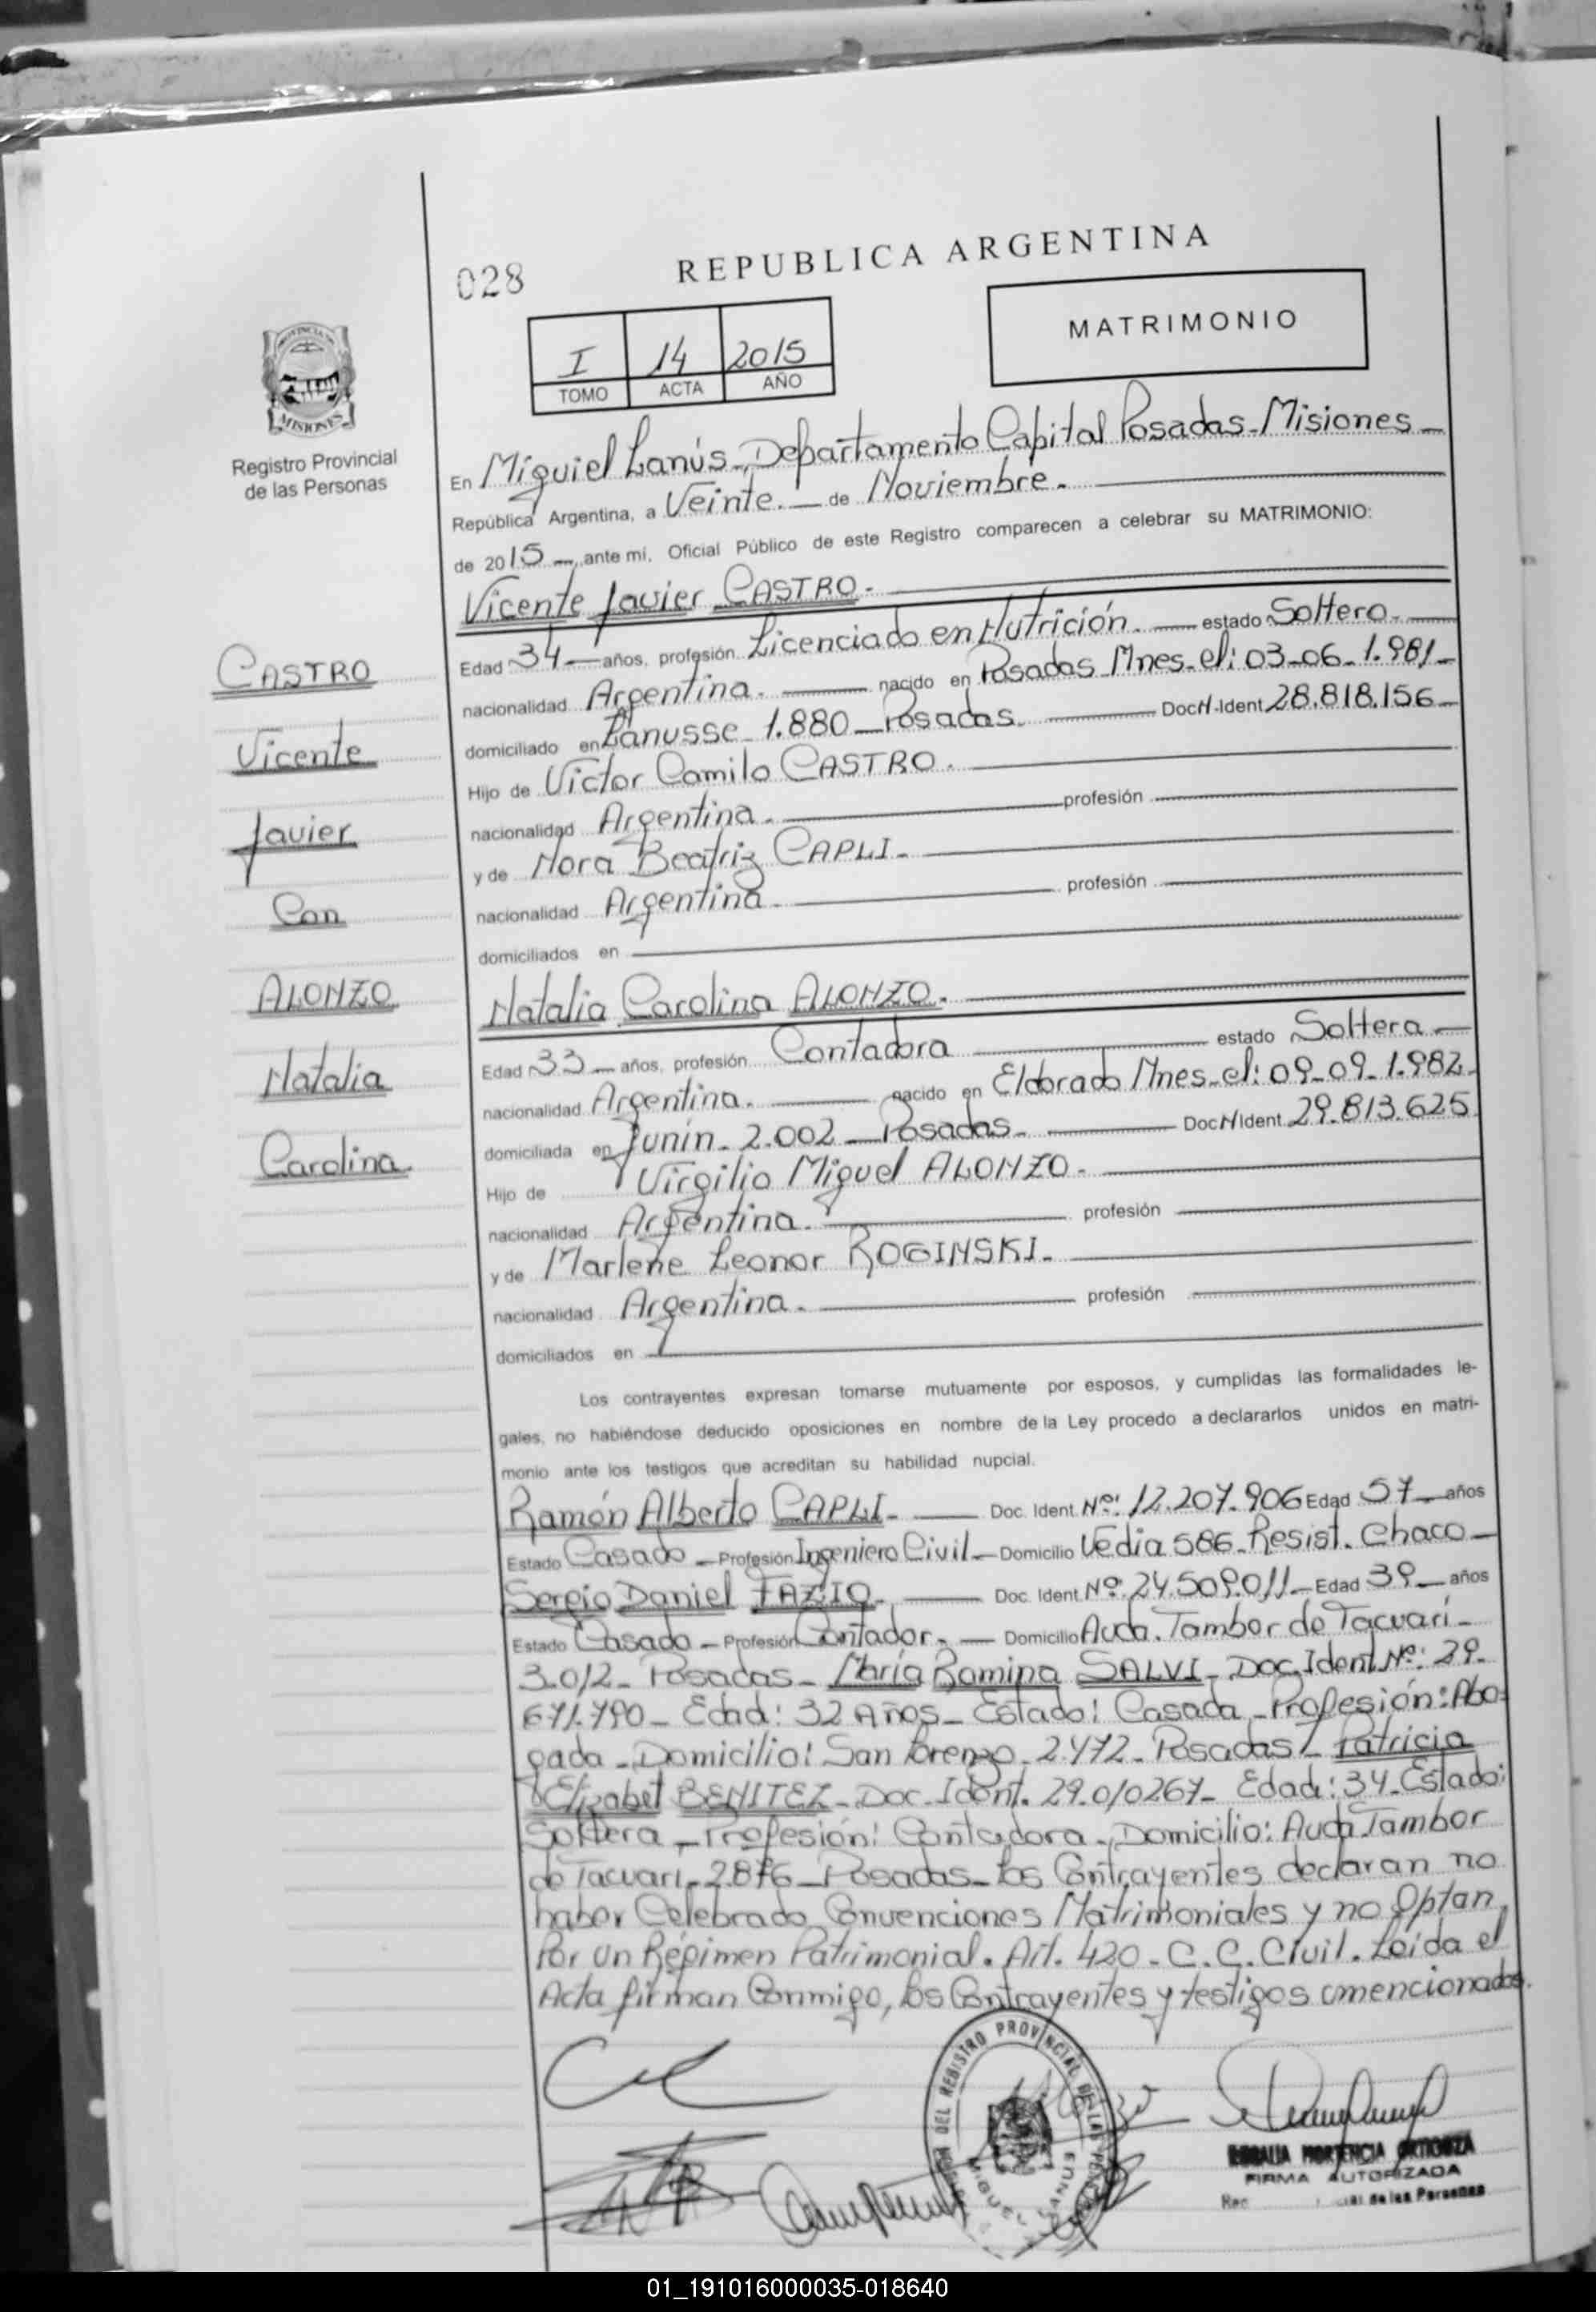 028
REPUBLICA ARGENTINA
I 14 2015
TOMO ACTA AÑO
MATRIMONIO
PROVINCIA DE
MISIONES
Registro Provincial
de las Personas
En Miguiel Lanús - Departamento Capital Posadas - Misiones -
República Argentina, a Veinte. - de Noviembre. -
de 2015 - ante mi, Oficial Público de este Registro comparecen a celebrar su MATRIMONIO:
Vicente Javier CASTRO. -
Edad 34 - años, profesión Licenciado en Nutrición. - estado Soltero. -
nacionalidad Argentina. - nacido en Posadas Mnes. el: 03-06-1.981 -
domiciliado en Lanusse - 1.880 - Posadas. - Doc N. Ident 28.818.156 -
Hijo de Victor Camilo CASTRO. -
nacionalidad Argentina. - profesión
y de Nora Beatriz CAPLI. -
nacionalidad Argentina. - profesión
domiciliados en
CASTRO
Vicente
Javier
Con
ALONZO
Natalia
Carolina
Natalia Carolina ALONZO. -
Edad 33 - años, profesión Contadora estado Soltera -
nacionalidad Argentina. - nacido en Eldorado Mnes. el: 09-09-1.982 -
domiciliada en Junín - 2.002 - Posadas - Doc N Ident 29.813.625
Hijo de Virgilio Miguel ALONZO -
nacionalidad Argentina. - profesión
y de Marlene Leonor ROGINSKI -
nacionalidad Argentina. - profesión
domiciliados en
Los contrayentes expresan tomarse mutuamente por esposos, y cumplidas las formalidades le-
gales, no habiéndose deducido oposiciones en nombre de la Ley procedo a declararlos unidos en matri-
monio ante los testigos que acreditan su habilidad nupcial.
Ramón Alberto CAPLI - Doc. Ident. Nº: 12.207.906 Edad 57 - años
Estado Casado - Profesión Ingeniero Civil - Domicilio Vedia 586 - Resist. Chaco -
Sergio Daniel FAZIO - Doc. Ident. Nº. 24.509.011 - Edad 39 - años
Estado Casado - Profesión Contador. - Domicilio Avda. Tambor de Tacuarí -
3.012 - Posadas - María Romina SALVI - Doc. Ident. Nº: 29.
671.790 - Edad: 32 Años - Estado: Casada - Profesión: Abo-
gada - Domicilio: San Lorenzo - 2.472 - Posadas / Patricia
Elizabet BENITEZ - Doc. Ident. 29.010267 - Edad: 34 - Estado:
Soltera - Profesión: Contadora - Domicilio: Avda Tambor
de Tacuarí - 2.876 - Posadas - Los Contrayentes declaran no
haber Celebrado Convenciones Matrimoniales y no Optan
Por un Régimen Patrimonial. Art. 420 - C.C. Civil. Leída el
Acta firman Conmigo, los Contrayentes y testigos mencionados.
DEL REGISTRO PROVINCIAL DE LAS
MIGUEL LANUS
HORTENCIA
FIRMA AUTORIZADA
de las Personas
01_191016000035-018640